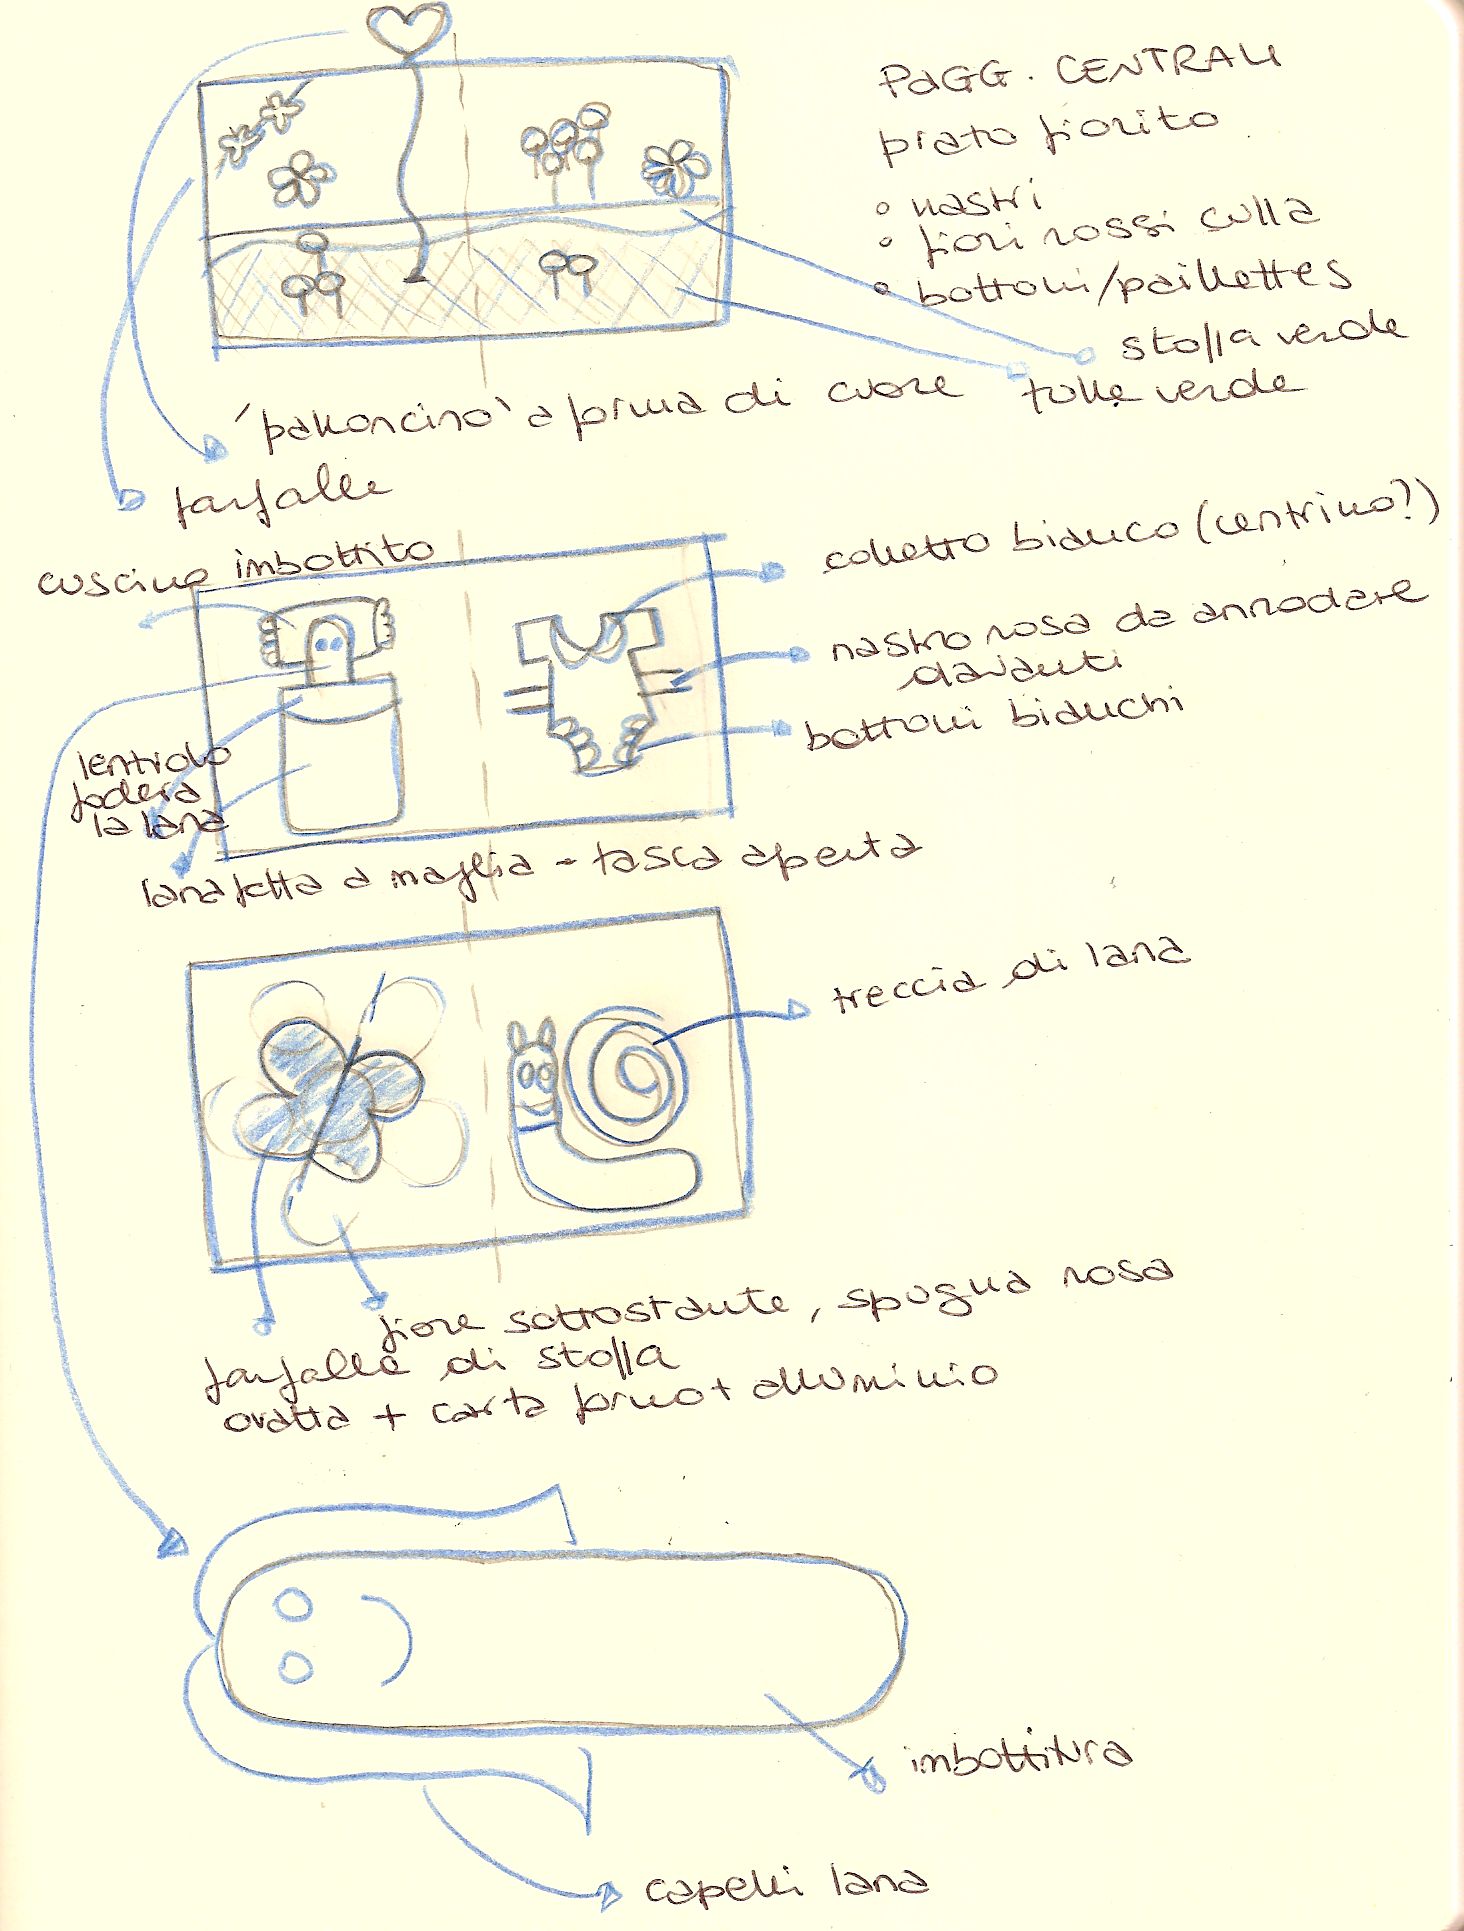 PAGG. CENTRALI
prato fiorito
nastri
fiori rossi culla
bottoni/paillettes
stoffa verde
tulle verde
'palloncino' a forma di cuore
farfalle
cuscino imbottito
colletto bianco (centrino?)
nastro rosa da annodare
davanti
bottoni bianchi
lenzuolo
fodera
la lana
lana fatta a maglia - tasca aperta
treccia di lana
fiore sottostante, spugna rosa
farfalle di stoffa
ovatta + carta forno + alluminio
imbottitura
capelli lana